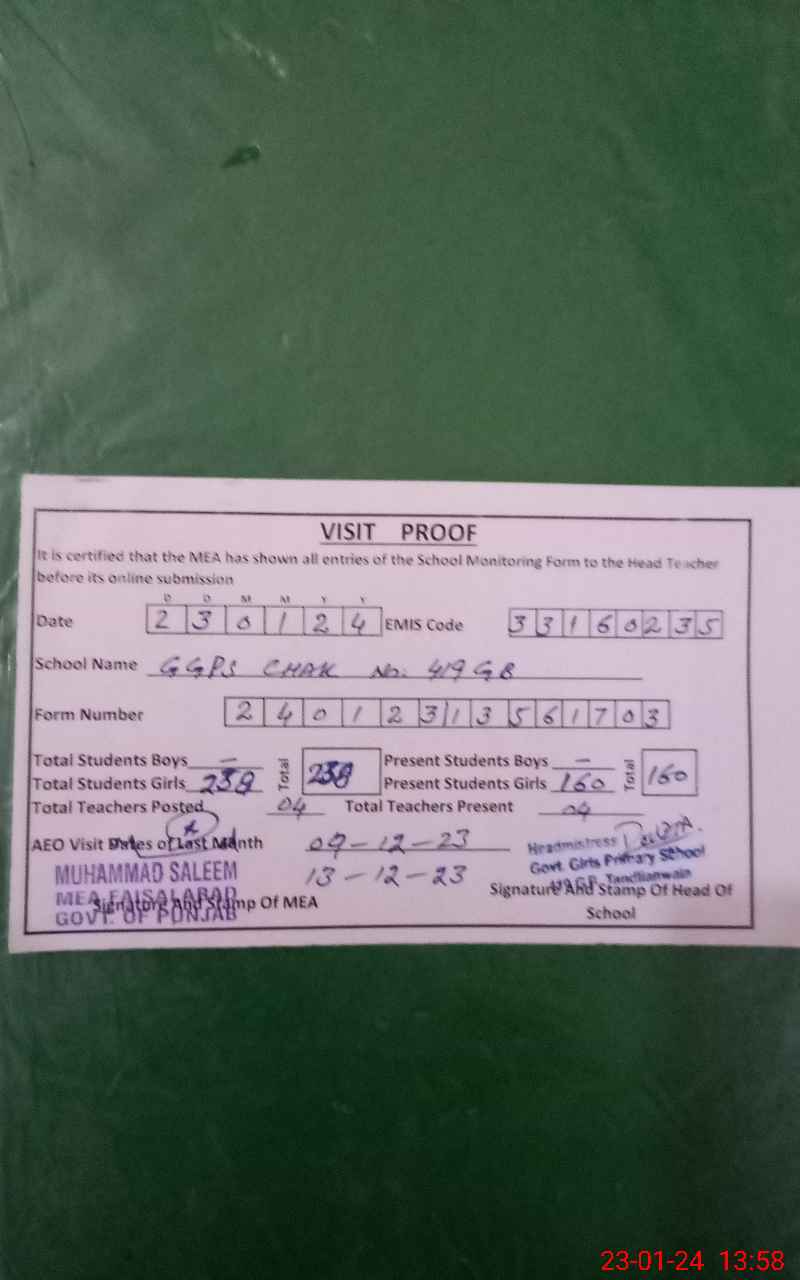 VISIT PROOF
It is certified that the MEA has shown all entries of the School Monitoring Form to the Head Teacher
before its online submission
D D M M Y Y
Date 2 3 0 1 2 4 EMIS Code 3 3 1 6 0 2 3 5
School Name GGPS CHAK No. 419 GB
Form Number 2 4 0 1 2 3 1 3 5 6 1 7 0 3
Total Students Boys — Total 238 Present Students Boys — Total 160
Total Students Girls 238 Present Students Girls 160
Total Teachers Posted 04 Total Teachers Present 04
AEO Visit Dates of Last Month 09-12-23
13-12-23
MUHAMMAD SALEEM
MEA FAISALABAD
GOVT. OF PUNJAB
Signature And Stamp Of MEA
Headmistress
Govt. Girls Primary School
Tandlianwala
Signature And Stamp Of Head Of
School
23-01-24 13:58